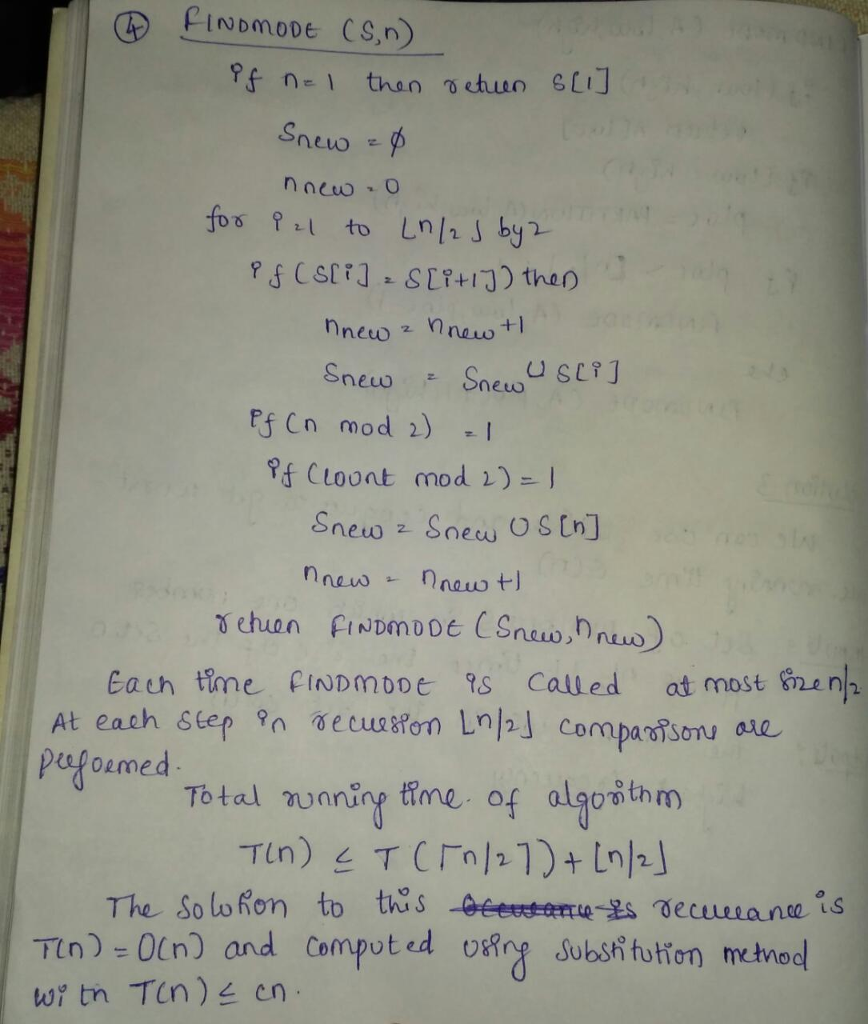 ④ FINDMODE (S,n)
if n=1 then return S[1]
Snew = ϕ
nnew = 0
for i=1 to ⌊n/2⌋ by 2
if (S[i] = S[i+1]) then
nnew = nnew +1
Snew = Snew ∪ S[i]
if (n mod 2) = 1
if (count mod 2) = 1
Snew = Snew ∪ S[n]
nnew = nnew +1
return FINDMODE (Snew, nnew)
Each time FINDMODE is called at most size n/2
At each step in recursion ⌊n/2⌋ comparisons are
performed.
Total running time of algorithm
T(n) ≤ T(⌈n/2⌉) + ⌊n/2⌋
The solution to this recurrance is
T(n) = O(n) and computed using substitution method
with T(n) ≤ cn.